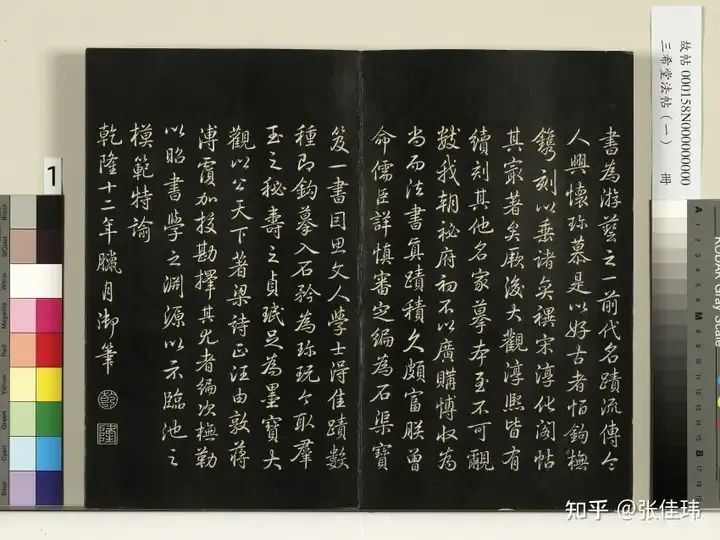 書為游藝之一前代名蹟流傳令
人興懷珍慕是以好古者恆鉤橅
鐫刻以垂諸奕禩宋淳化閣帖
其最著矣厥後大觀淳熙皆有
續刻其他名家摹本至不可覼
數我朝秘府初不以廣購博收為
尚而法書真蹟積久頗富朕曾
命儒臣詳慎審定編為石渠寶
笈一書因思文人學士得佳蹟數
種即鉤摹入石矜為珍玩今取羣
玉之秘壽之貞珉足為墨寶大
觀以公天下著梁詩正汪由敦蔣
溥覈加校勘擇其尤者編次橅勒
以昭書學之淵源以示臨池之
模範特諭
乾隆十二年臘月御筆
乾
隆
故帖 000158N000000000
三希堂法帖（一） 冊
1
Black
3/Color
White
Magenta
Red
Yellow
Green
Cyan
Blue
A
M
B
知乎 @张佳玮